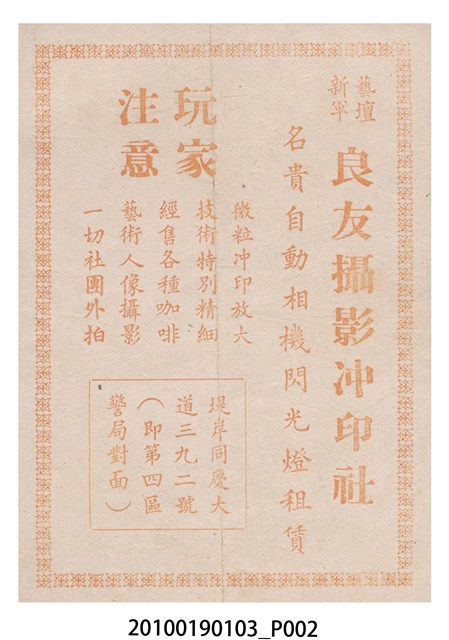 藝壇
新軍
良友攝影冲印社
名貴自動相機閃光燈租賃
玩家
注意
微粒冲印放大
技術特別精細
經售各種咖啡
藝術人像攝影
一切社團外拍
堤岸同慶大
道三九二號
（即第四區
警局對面）
20100190103_P002